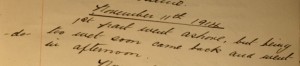 November 11th 1914
1st part went ashore, but being
-do- to wet soon came back and went
in afternoon.